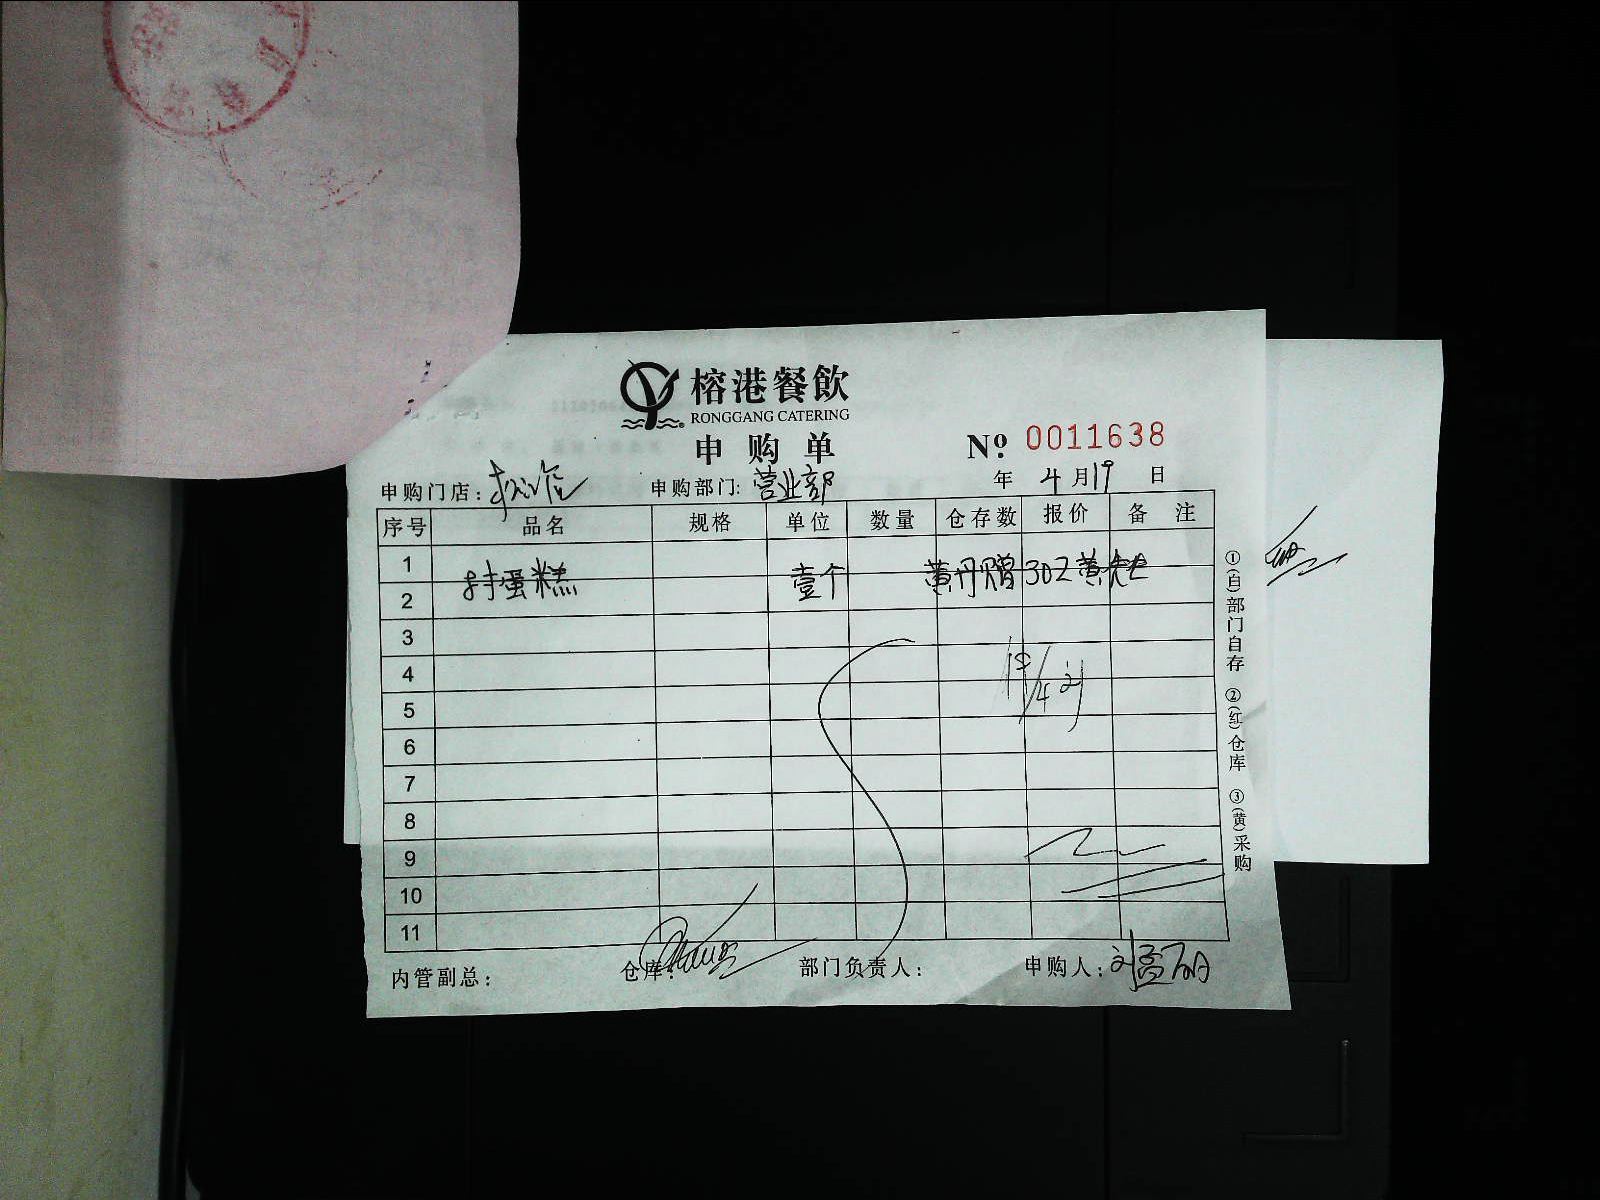 榕港餐飲
RONGGANG CATERING
申购单
Nº 0011638
申购门店: 申购部门: 营业部 年 4月19日
序号 品名 规格 单位 数量 仓存数 报价 备注
1
8寸蛋糕 壹个 黄丹赠 302黄
2
3
4
19/4
5
6
7
8
9
10
11
内管副总: 仓库: 部门负责人: 申购人: 刘孟丽
①(白)部门自存 ②(红)仓库 ③(黄)采购